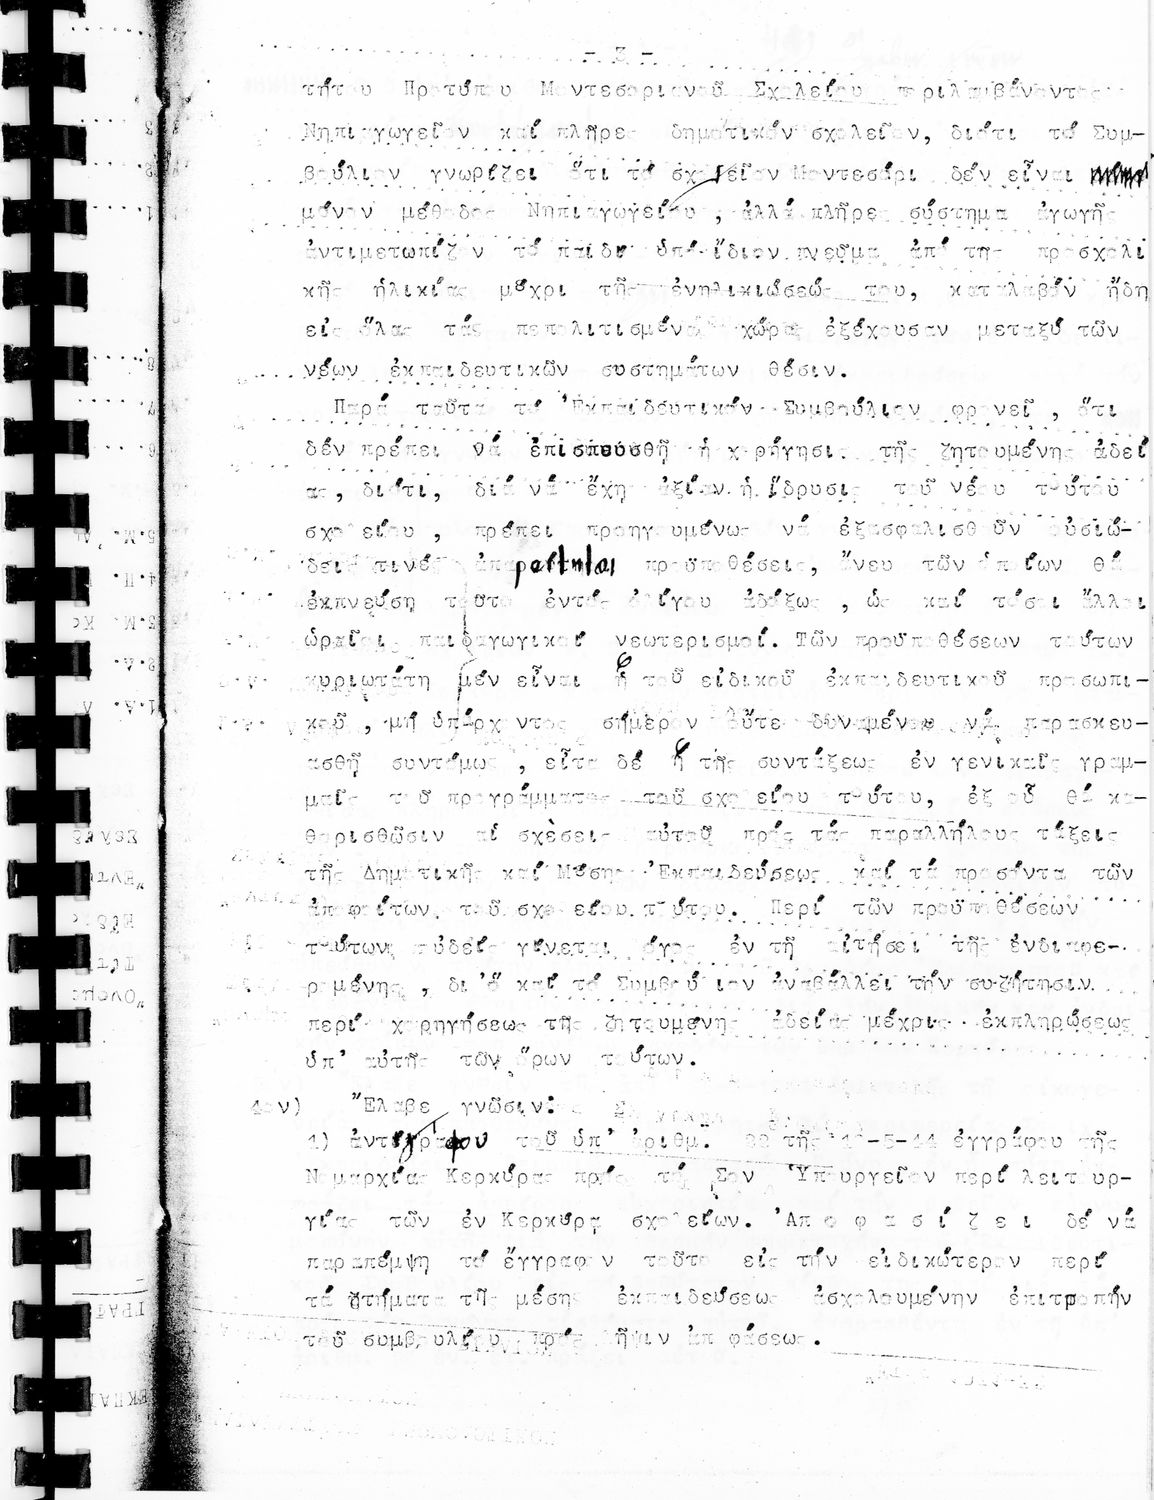 - 3 -
τήτου Προτύπου Μοντεσοριανοῦ Σχολείου περιλαμβάνοντος
Νηπιαγωγεῖον καί πλῆρες δημοτικόν σχολεῖον, διότι τό Συμ-
βούλιον γνωρίζει ὅτι τό σχολεῖον Μοντεσόρι δέν εἶναι
μόνον μέθοδος Νηπιαγωγείου, ἀλλά πλῆρες σύστημα ἀγωγῆς
ἀντιμετωπίζον τό παιδί ὑπό ἴδιον πνεῦμα ἀπό της προσχολι
κῆς ἡλικίας μέχρι τῆς ἐνηλικιώσεώς του, καταλαβόν ἤδη
εἰς ὅλας τάς πεπολιτισμένας χώρας ἐξέχουσαν μεταξύ τῶν
νέων ἐκπαιδευτικῶν συστημάτων θέσιν.
Παρά ταῦτα τό Ἐκπαιδευτικόν Συμβούλιον φρονεῖ, ὅτι
δέν πρέπει νά ἐπισπευσθῇ ἡ χορήγησις τῆς ζητουμένης ἀδεί
ας, διότι, διά νά ἔχῃ ἀξίαν ἡ ἵδρυσις τοῦ νέου τούτου
σχολείου, πρέπει προηγουμένως νά ἐξασφαλισθοῦν οὐσιώ-
δεις τινές ἀπαραίτητοι προϋποθέσεις, ἄνευ τῶν ὁποίων θά
ἐκπνεύσῃ τοῦτο ἐντός ὀλίγου ἀδόξως, ὡς καί τόσοι ἄλλοι
ὡραῖοι παιδαγωγικοί νεωτερισμοί. Τῶν προϋποθέσεων τούτων
κυριωτάτη μέν εἶναι ἡ τοῦ εἰδικοῦ ἐκπαιδευτικοῦ προσωπι-
κοῦ, μή ὑπάρχοντος σήμερον οὔτε δυναμένου νά παρασκευ-
ασθῇ συντόμως, εἶτα δέ ἡ τῆς συντάξεως ἐν γενικαῖς γραμ-
μαῖς τοῦ προγράμματος τοῦ σχολείου τούτου, ἐξ οὗ θά κα-
θορισθῶσιν αἱ σχὲσεις αὐτοῦ πρός τάς παραλλήλους τάξεις
τῆς Δημοτικῆς καί Μέσης Ἐκπαιδεύσεως καί τά προσόντα τῶν
ἀποφοίτων τοῦ σχολείου τούτου. Περί τῶν προϋποθέσεων
τούτων οὐδείς γίνεται λόγος ἐν τῇ αἰτήσει τῆς ἐνδιαφε-
ρομένης, δι' ὅ καί τό Συμβούλιον ἀναβάλλει τήν συζήτησιν
περί χορηγήσεως τῆς ζητουμένης ἀδείας μέχρις ἐκπληρώσεως
ὑπ' αὐτῆς τῶν ὅρων τούτων.
4ον) Ἔλαβε γνῶσιν:
1) ἀντιγράφου τοῦ ὑπ' ἀριθμ. τῆς -5-44 ἐγγράφου τῆς
Νομαρχίας Κερκύρας πρός τό Σον Ὑπουργεῖον περί λειτουρ-
γίας τῶν ἐν Κερκύρᾳ σχολείων. Ἀ π ο φ α σ ί ζ ε ι δέ νά
παραπέμψῃ τό ἔγγραφον τοῦτο εἰς τήν εἰδικώτερον περί
τά ζητήματα τῆς μέσης ἐκπαιδεύσεως ἀσχολουμένην ἐπιτροπήν
τοῦ συμβουλίου πρός λῆψιν ἀποφάσεως.